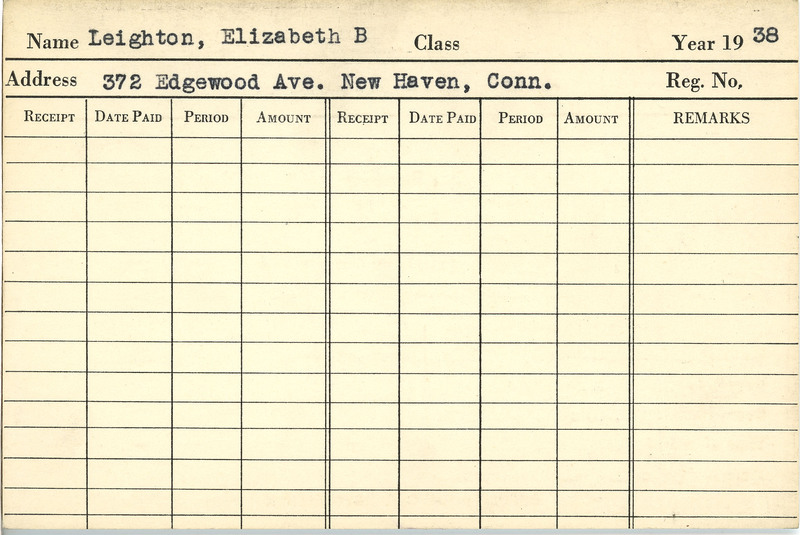 Name Leighton, Elizabeth B Class Year 19 38
Address 372 Edgewood Ave. New Haven, Conn. Reg. No.
RECEIPT DATE PAID PERIOD AMOUNT RECEIPT DATE PAID PERIOD AMOUNT REMARKS